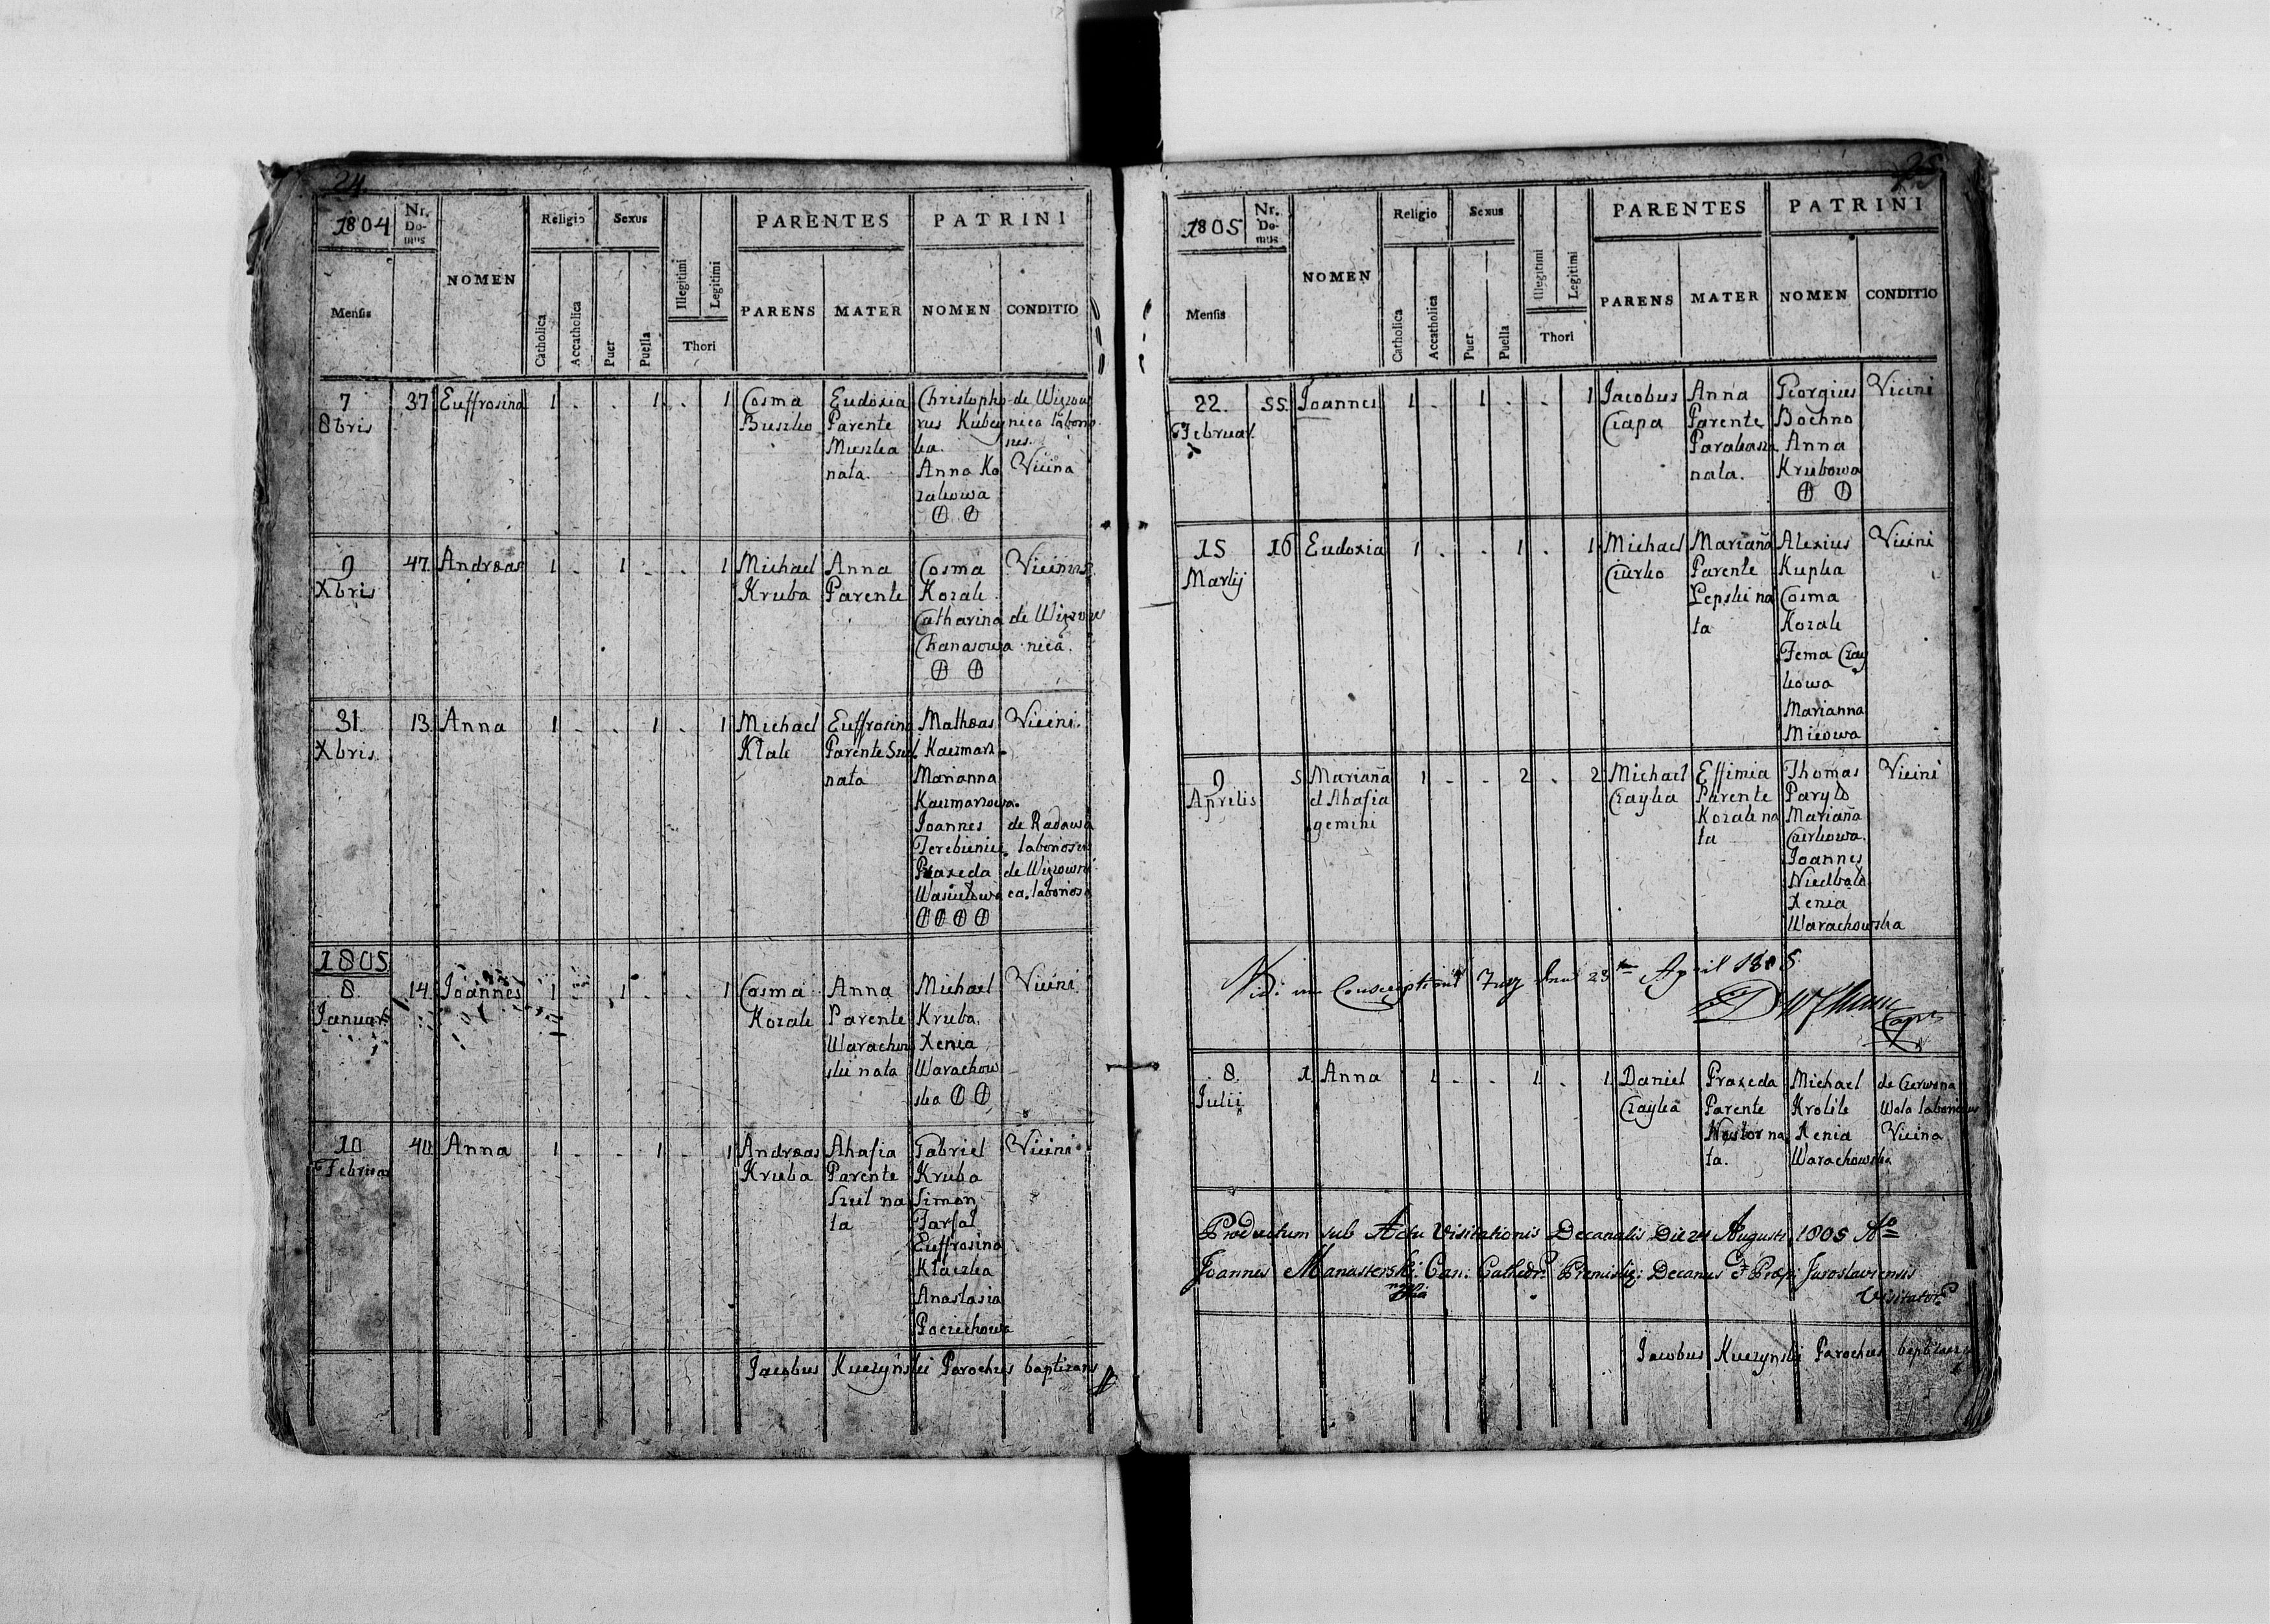 24.
1804
Nr. Do- mus
NOMEN
Religio
Sexus
PARENTES
PATRINI
Mensis
Catholica
Accatholica
Puer
Puella
Illegitimi
Legitimi
Thori
PARENS
MATER
NOMEN
CONDITIO
7 37 Euffrosina 1 . . 1 . 1 Cosma Eudoxia Christopho de Wiązow
8bris Buszko Parente rus Kubey nica laborio
Muszka ka. sus.
nata. Anna Ko Vicina
zakowa
9 47 Andreas 1 . 1 . . 1 Michael Anna Cosma Vicinus
Xbris Kruba Parente Kozak
Catharina de Wiązow
Chanasowa nica.
31 13 Anna 1 . . 1 . 1 Michael Euffrosina Matheas Vicini.
Xbris Klak Parente Szul Kaczmarz
nata Marianna
Kaczmarzowa.
Joannes de Radawa
Terebieniec laboriosus
Praxeda de Wiązowni
Wasiutowa ca. laboriosa
1805
8 14 Joannes 1 . 1 . . 1 Cosma Anna Michael Vicini
Januar Kozak Parente Kruba.
Warachow Xenia
ski nata Warachow
ska
10 40 Anna 1 . . 1 . 1 Andreas Ahafia Gabriel Vicini
Februar Kruba Parente Kruba
Szul na Simon
ta Farfal
Euffrosina
Klaczka
Anastasia
Paciechowa
Jacobus Kuczyński Parochus baptizans
25.
1805
Nr. Do- mus
NOMEN
Religio
Sexus
PARENTES
PATRINI
Mensis
Catholica
Accatholica
Puer
Puella
Illegitimi
Legitimi
Thori
PARENS
MATER
NOMEN
CONDITIO
22. 55. Joannes 1 . 1 . . 1 Jacobus Anna Georgius Vicini
Februar. Czapa Parente Bochno
Parakasza Anna
nata. Krubowa
15 16 Eudoxia 1 . . 1 . 1 Michael Mariana Alexius Vicini
Martij Czurko Parente Kupka
Lepski na Cosma
ta Kozak
Fema Czay
kowa
Marianna
Micowa
9 5 Mariana 1 . . 2 . 2 Michael Effimia Thomas Vicini
Aprilis et Ahafia Czayka Parente Paryło
gemini Kozak na Mariana
ta Czerkowa.
Joannes
Niedbało
Xenia
Warachowska
April 1805
8 1 Anna 1 . . 1 . 1 Daniel Praxeda Michael de Czerwona
Julii Czayka Parente Krolik Wola laboriosus
Nestor na Xenia Vicina
ta. Warachowska
Productum sub Actu Visitationis Decanalis Die 24 Augusti 1805 Ao
Joannes Manasterski Can: Cathedr: Premisl: Decanus et Praep: Jaroslaviensis
Visitator
Jacobus Kuczyński Parochus baptizans